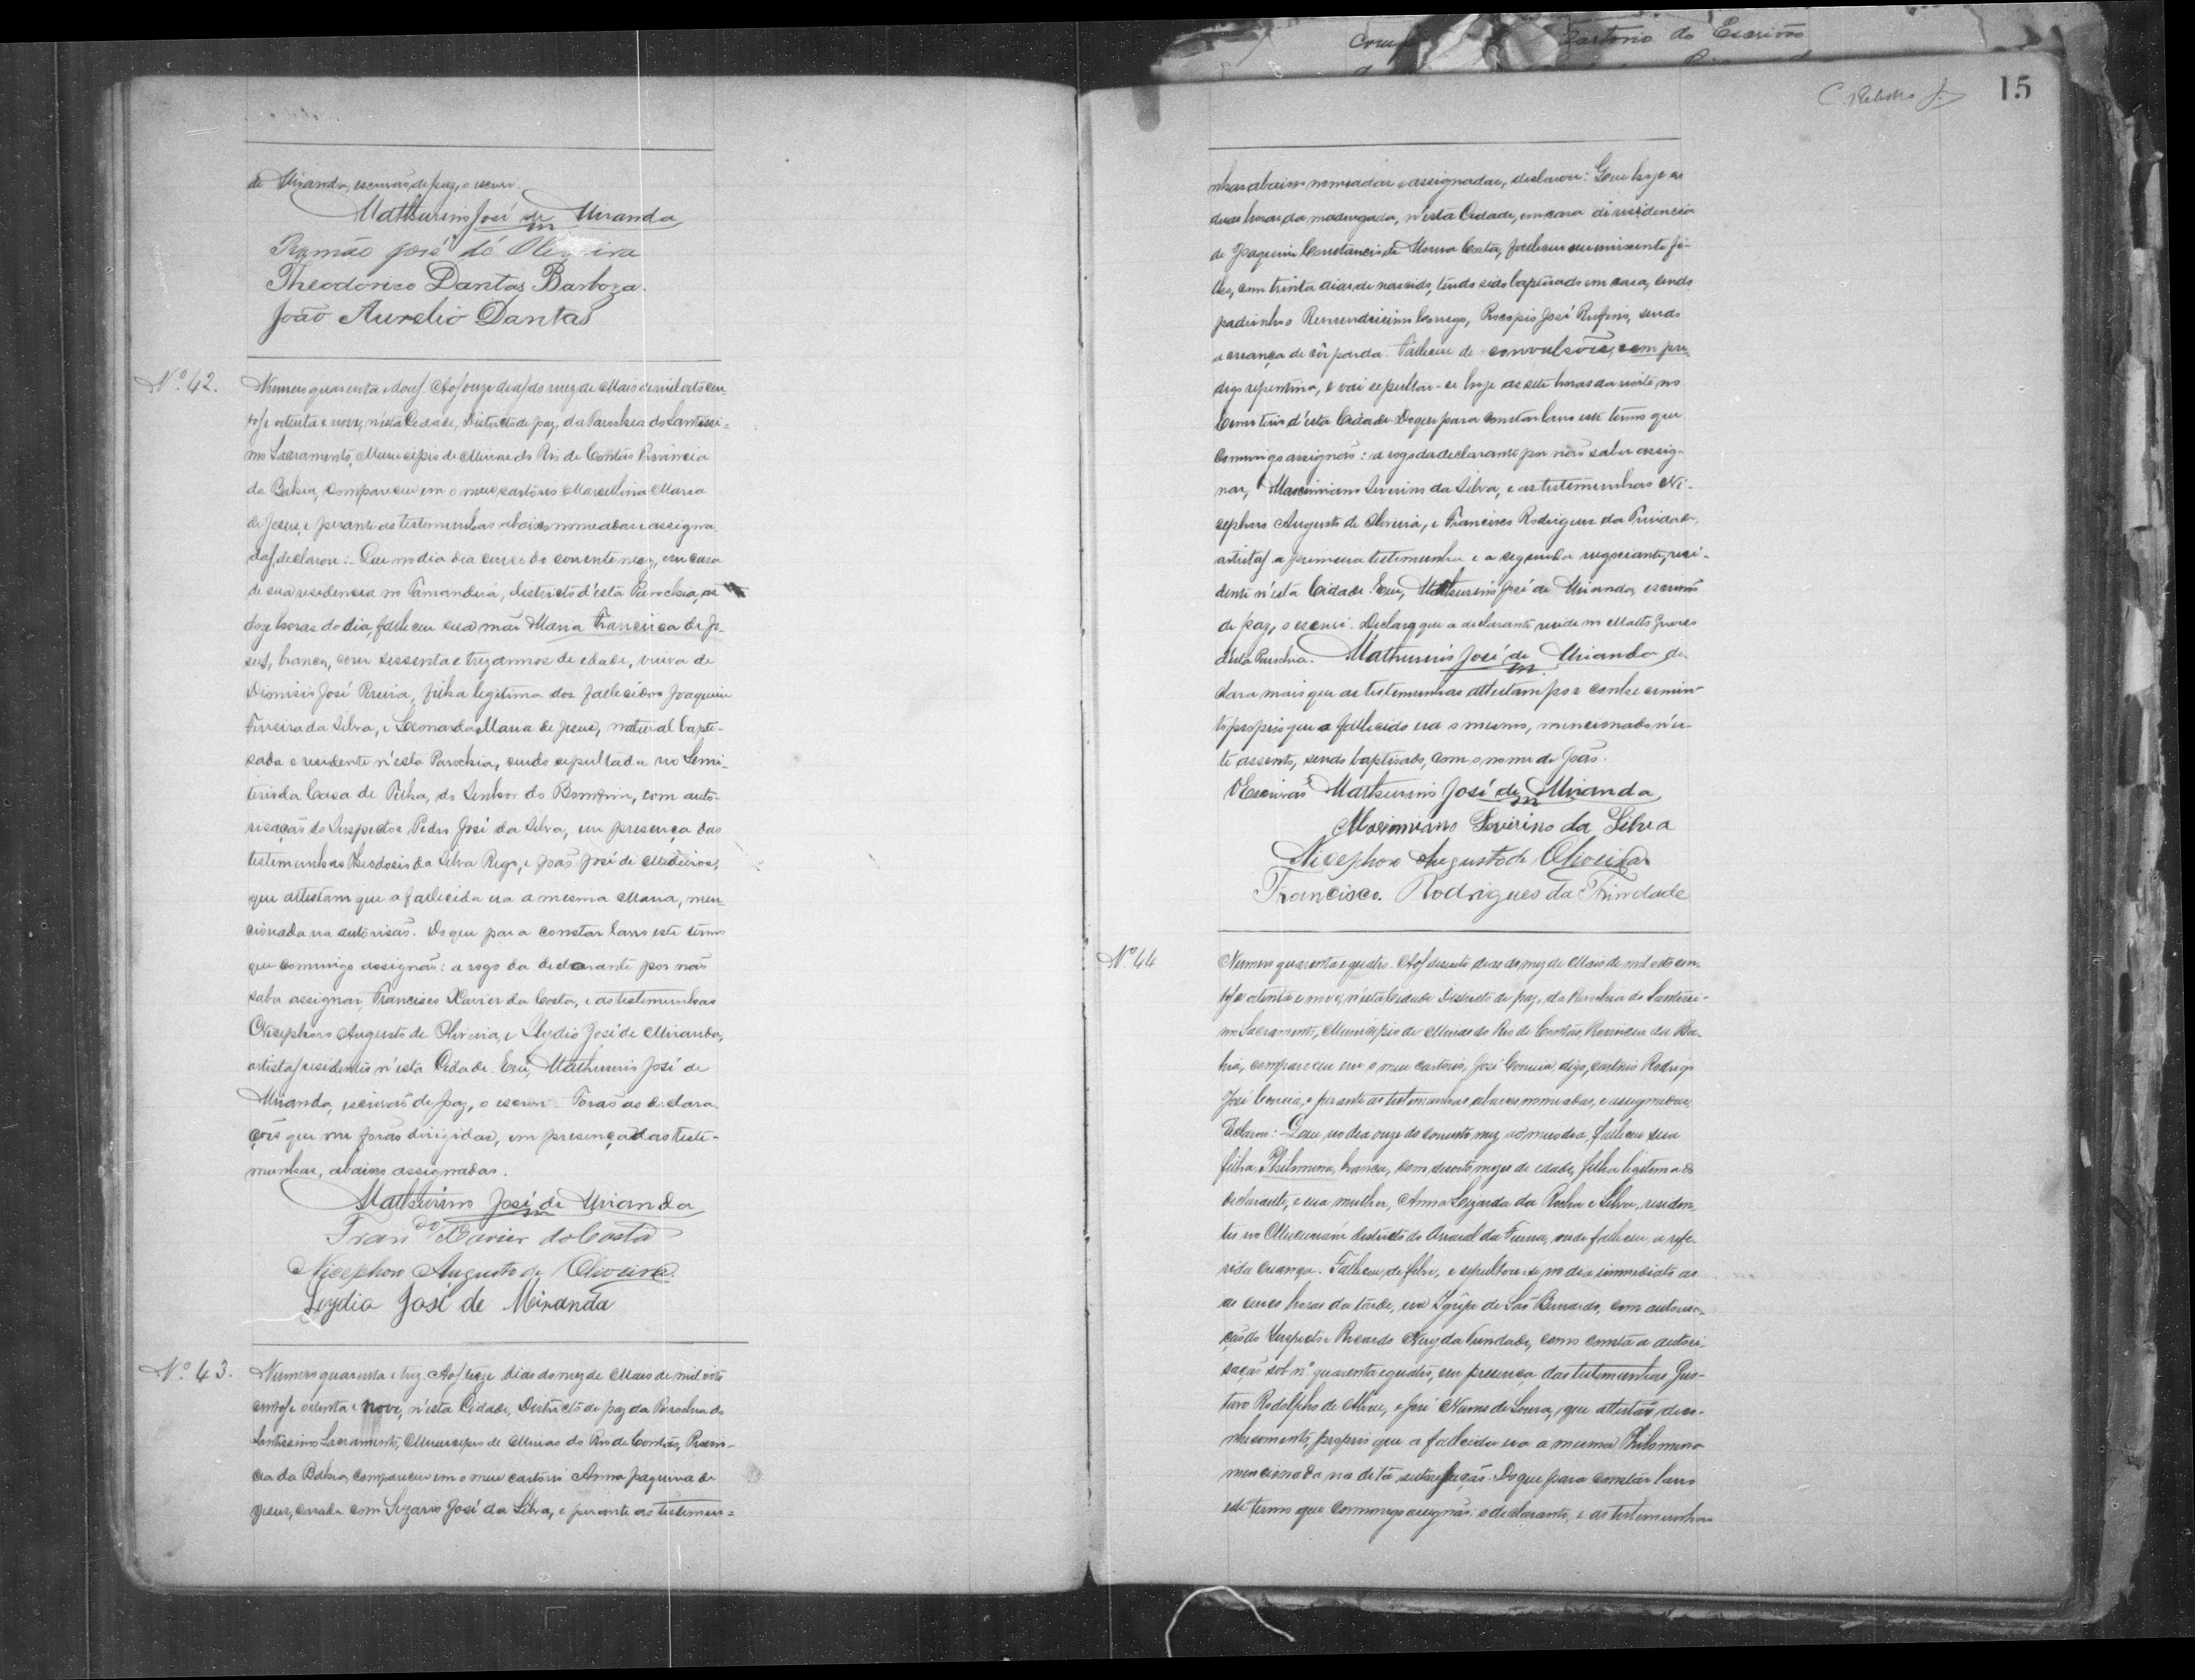 de Miranda, escrivão de paz, o escrevi.
Mathurino José de Miranda
Ramão José de Oliveira
Theodorico Dantas Barboza.
João Aurelio Dantas
Nº 42.
Numero quarenta e dous. Aos onze dias do mez de Maio de mil oito cen
tos e oitenta e nove, n'esta Cidade, Districto de paz, da Parochia do Santissi=
mo Sacramento, Municipio de Minas do Rio de Contas Provincia
da Bahia, compareceu em o meu cartorio Marcellina Maria
de Jesus, e perante as testemunhas abaixo nomeadas e assigna
das declarou: Que no dia cinco do corrente mez, em casa
de sua residencia no Tamanduá, districto d'esta Parochia, as
doze horas do dia, falleceu sua mãe Maria Francisca de Je-
sus, branca, com sessenta e trez annos de edade, viuva de
Dionisio José Pereira, filha legitima dos fallecidos Joaquim
Ferreira da Silva, e Leonarda Maria de Jesus, natural bapti-
sada e residente n'esta Parochia, sendo sepultada no Cemi-
terio da Casa de Telha, do Senhor do Bomfim, com auto-
risação do Inspector Pedro José da Silva, em presença das
testemunhas Theodosio da Silva Rego, e João José de Medeiros,
que attestam que a fallecida era a mesma Maria, men-
cionada na autorisão. Do que para constar lavro este termo
que commigo assignão: a rogo da declarante por não
saber assignar, Francisco Xavier da Costa, e as testemunhas
Nicephoro Augusto de Oliveira, e Lydio José de Miranda,
artistas residentes n'esta Cidade. Eu, Mathurino José de
Miranda, escrivão de paz, o escrevi. Forão as declara
ções que me forão dirigidas, em presença das teste-
munhas, abaixo assignadas.
Mathurino José de Miranda
Franco Xavier da Costa
Nicephoro Augusto de Oliveira
Leydio José de Miranda
Nº 43.
Numero quarenta e trez. Aos treze dias do mez de Maio de mil oito
centos e oitenta e nove, n'esta Cidade, Districto de paz da Parochia do
Santissimo Sacramento, Municipio de Minas do Rio de Contas, Provin-
cia da Bahia, compareceu em o meu cartorio Anna Joaquina de
Jesus, casada com Lizario José da Silva, e perante as testemu=
15
nhas abaixo nomeadas e assignadas, declarou: Que hoje as
duas horas da madrugada, n'esta Cidade, em casa de residencia
de Joaquim Constancio de Moura Costa, falleceu seu innocente fi-
lho, com trinta dias de nascido, tendo sido baptisado em casa, sendo
padrinho o Reverendissimo Conego, Procopio José Rufino, sendo
a creança de côr parda. Falleceu de convulsões, sem pe
digo repentina, e vai sepultar-se hoje as sete horas da noite no
Cemiterio d'esta Cidade. Do que para constar lavro este termo que
commigo assignão: a rogo da declarante por não saber assig-
nar, Maximiano Severino da Silva, e as testemunhas Ni-
cephoro Augusto de Oliveira, e Francisco Rodrigues da Trindade,
artistas a primeira testemunha e a segunda negociante, resi-
dente n'esta Cidade. Eu, Mathurino José de Miranda, escrivão
de paz, o escrevi. Declaro que a declarante reside no Matto Grosso
d'esta Parochia. Mathurino José de Miranda de
clara mais que as testemunhas attestam por conhecimen-
to proprio que o fallecido era o mesmo, mencionado n'es-
te assento, sendo baptisado, com o nome de João.
O Escrivão Mathurino José de Miranda
Maximiano Severino da Silva
Nicephoro Augusto de Oliveira
Francisco Rodrigues da Trindade
Nº 44
Numero quarenta e quatro. Aos dezesete dias do mez de Maio de mil oito cen-
tos e oitenta e nove, n'esta Cidade Districto de paz, da Parochia do Santissi-
mo Sacramento, Municipio de Minas do Rio de Contas, Provincia da Ba-
hia, compareceu em o meu cartorio, José Correia, digo, cartorio Rodrigo
José Correia, e perante as testemunhas, abaixo nomeadas, e assignadas,
declarou: Que no dia onze do corrente mez, ao meio dia, falleceu sua
filha, Philomena, branca, com dezoito mezes de edade, filha legitima do
declarante, e sua mulher, Anna Lizarda da Rocha e Silva, residen
tes no districto do Arraial da Furna, onde falleceu a refe-
rida creança. Falleceu de febre, e sepultou-se no dia immediato as
as cinco horas da tarde, na Igreja de São Bernardo, com autorisa-
ção do Inspector Ricardo Nery da Trindade, como consta a autori-
sação sob nº quarenta e quatro, em presença das testemunhas Gus-
tavo Rodolpho de Abreu, e José Nunes de Souza, que attestão de co-
nhecimento, proprio que a fallecida era a mesma Philomena
mencionada na dita autorisação. Do que para constar lavro
este termo que commigo assignão: o declarante, e as testemunhas